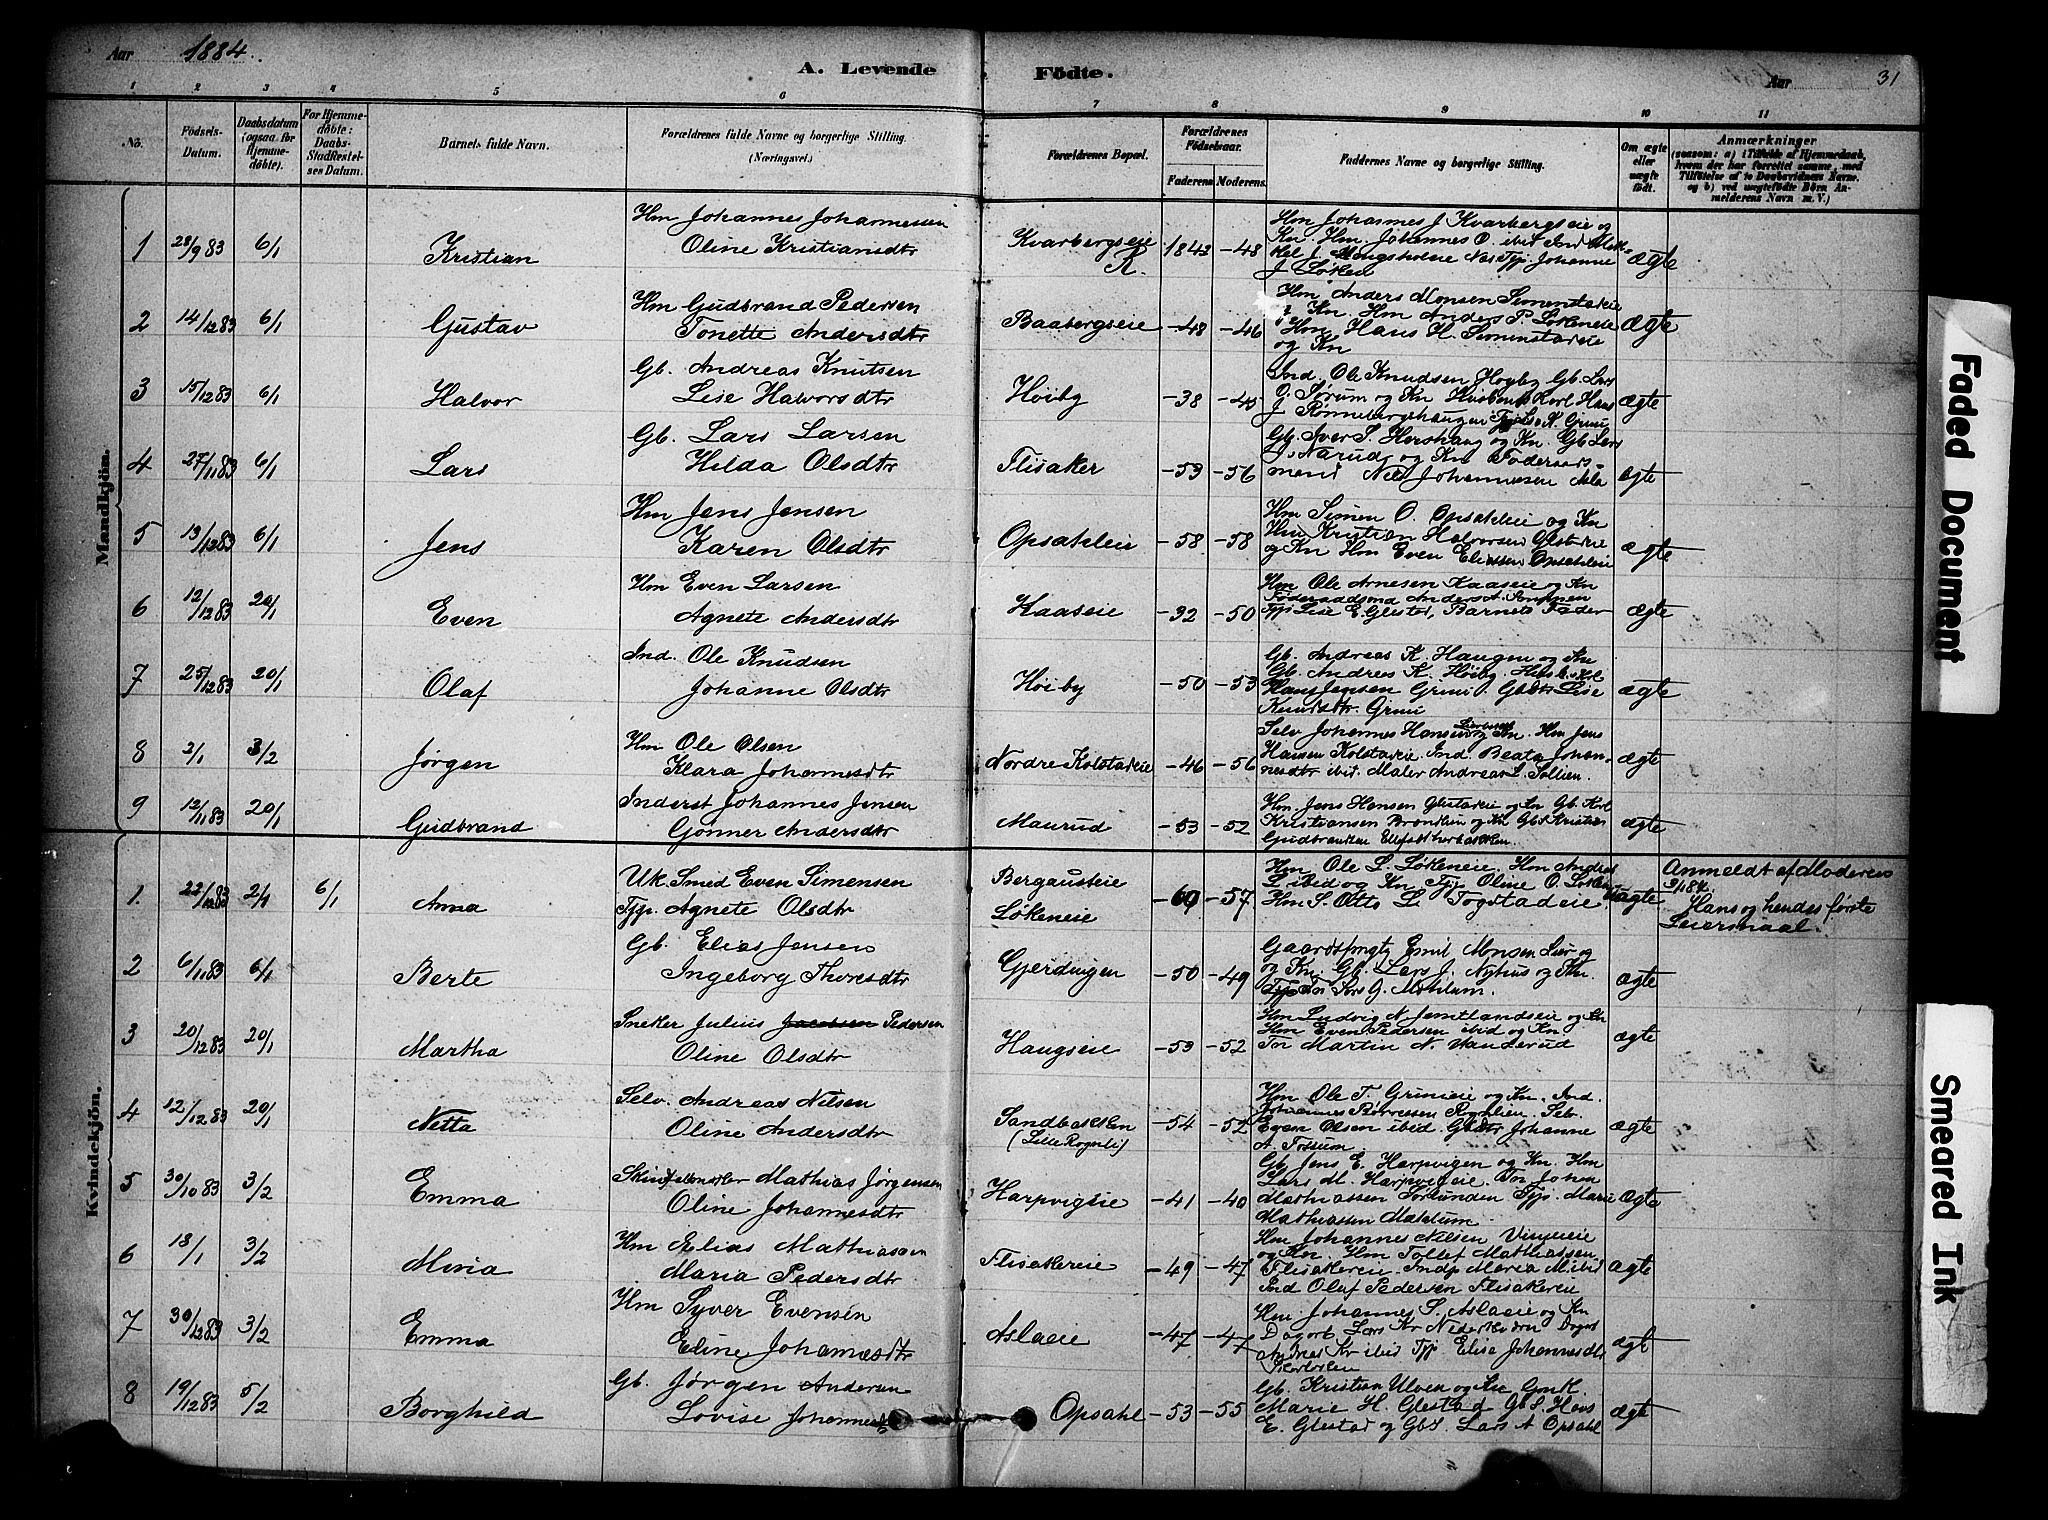 Aar 1884.
A. Levende Födte.
Aar 31
1 2 3 4 5 6 7 8 9 10 11
No.
Födsels-Datum.
Daabsdatum (ogsaa for Hjemmedöbte).
For Hjemmedöbte: Daabs-Stadfæstelses Datum.
Barnets fulde Navn.
Forældrenes fulde Navne og borgerlige Stilling.
(Næringsvei.)
Forældrenes Bopæl.
Forældrenes Födselsaar.
Faderens Moderens.
Faddernes Navne og borgerlige Stilling.
Om ægte eller uægte födt.
Anmærkninger
(saasom: a) i Tilfælde af Hjemmedaab,
hvem der har forrettet samme, med
Tilföielse af to Daabsvidners Navne,
og b) ved uægtefödte Börn An-
melderens Navn m. V.)
Mandkjön.
1 28/9 83 6/1 Kristian
Hm Johannes Johannessen
Oline Kristiansdtr
Kvarbergseie K. 1843 -48
Hm Johannes J Kvarbergseie og
Kn. Hm. Johannes O. ibid Ind
J Løken
ægte
2 14/12 83 6/1 Gustav
Hm Gudbrand Pedersen
Tonette Andersdtr
Baabergseie -48 -46
Hm Anders Monsen Simenstadeie
og Kn. Hm Anders P. Løkeneie
Hm Hans H. Simenstadeie
og Kn
ægte
3 15/12 83 6/1 Halvor
Gb. Andreas Knutsen
Lise Halvorsdtr
Høiby -38 -45
Ind. Ole Knudsen Høyby Gb. Lars
O. Sørum og Kn Karl Hans
ægte
4 27/11 83 6/1 Lars
Gb. Lars Larsen
Hilda Olsdtr
Flisaker -59 -56
Gb. Iver S. og Kn. Gb Lars
J. Narud og Kn Føderaads-
mand Nils Johannesen
ægte
5 13/12 83 6/1 Jens
Hm Jens Jensen
Karen Olsdtr
Opsahleie -58 -58
Hm Simen O. Opsahleie og Kn
Hm Kristian Halvorsen Glestadeie
og Kn Hm Even Eliassen Opsahleie
ægte
6 12/12 83 20/1 Even
Hm Even Larsen
Agnete Andersdtr
Kaaseie -32 -50
Hm Ole Arnesen Kaaseie og Kn
Føderaadsmd Anders A.
Tjp Lise E. Glestad, Barnets Fader
ægte
7 25/12 83 20/1 Olaf
Ind. Ole Knudsen
Johanne Olsdtr
Høiby -50 -53
Gb. Andreas K. Haugen og Kn
Gb. Andreas K. Høiby.
Hans Jensen Gruui Gbdtr Lise
Knudsdtr. Gruui
ægte
8 2/1 3/2 Jørgen
Hm Ole Olsen
Klara Johannesdtr
Nordre Kolstadeie -46 -56
Selv Johannes Hansen og Kn. Hm Jens
Hansen Kolstadeie. Ind. Beata Johan-
nesdtr ibid. Maler Andreas L. Tollien.
ægte
9 12/11 83 20/1 Gudbrand
Inderst Johannes Jensen
Gønner Andersdtr
Maurud -53 -52
Hm. Jens Hansen Glestadeie og Kn Gb. Karl
Kristiansen og Kn GbS Kristian
Gudbrandsen
ægte
Kvindekjön.
1 22/10 83 2/1 6/1 Anna
Uk. Smed Even Simensen
Tjp. Agnete Olsdtr
Bergausteie
Løkeneie -60 -57
Hm. Ole L. Løkeneie. Hm Andreas
L. ibid og Kn Tjp Oline O. Løken
HmS Otto L. Togstadeie.
uægte
Anmeldt af Moderen
3/1 84.
Hans og hendes første
Leiermaal.
2 6/11 83 6/1 Berte
Gb. Elias Jensen
Ingeborg Thoresdtr
Gjerdvigen -50 -49
Emil Monsen Lier og
og Kn. Gb. Lars J. Nyhus og Kn.
Lars G. Mæhlum.
ægte
3 20/12 83 20/1 Martha
Sneker Julius Jacobsen Pedersen
Oline Olsdtr
Haugseie -53 -52
Hm Ludvig N. Jemtlandseie og Kn
Hm Even Pedersen ibid og Kn
For Martin N. Vanderud
ægte
4 12/12 83 20/1 Netta
Selv. Andreas Nilsen
Oline Andersdtr
Sandbakken
(Lille Rognli) -54 -52
Hm Ole T. Gruuieie og Kn. Ind.
Johannes Børresen Rognlien. Selv.
Even Olsen ibid. Gbdtr Johanne
A. Fossum
ægte
5 30/10 83 3/2 Emma
Skindfelmakler Mathias Jørgensen
Oline Johannesdtr
Harpvigeie -41 -40
Gb. Jens E. Harpvigen og Kn. Hm
Lars M. Harpvigeie. For Johan
Mathiassen Sørlunden Tjp. Marie
Mathiassen Mæhlum.
ægte
6 18/1 3/2 Mina
Hm Elias Mathiassen
Maria Pedersdtr
Flisakereie -49 -47
Hm Johannes Nilsen
og Kn. Hm Tollef Mathiassen
Flisakereie. Indp Maria M. ibid
Ind Olaf Pedersen Flisakereie
ægte
7 30/12 83 3/2 Emma
Hm Syver Evensen
Eline Johannesdtr
Aslaeie -47 -47
Hm Johannes S. Aslaeie og Kn
Dagarb Lars Kr
Andreas Kr ibid Tjp. Elise Johannesdtr
ægte
8 19/12 83 5/2 Borghild
Gb. Jørgen Andersen
Lovise Johannesdtr
Opsahl -53 -55
Gb. Kristian Ulven og Kn
Marie H. Glestad GbS. Hans
E. Glestad og GbS. Lars A Opsahl
ægte
Faded Document
Smeared Ink